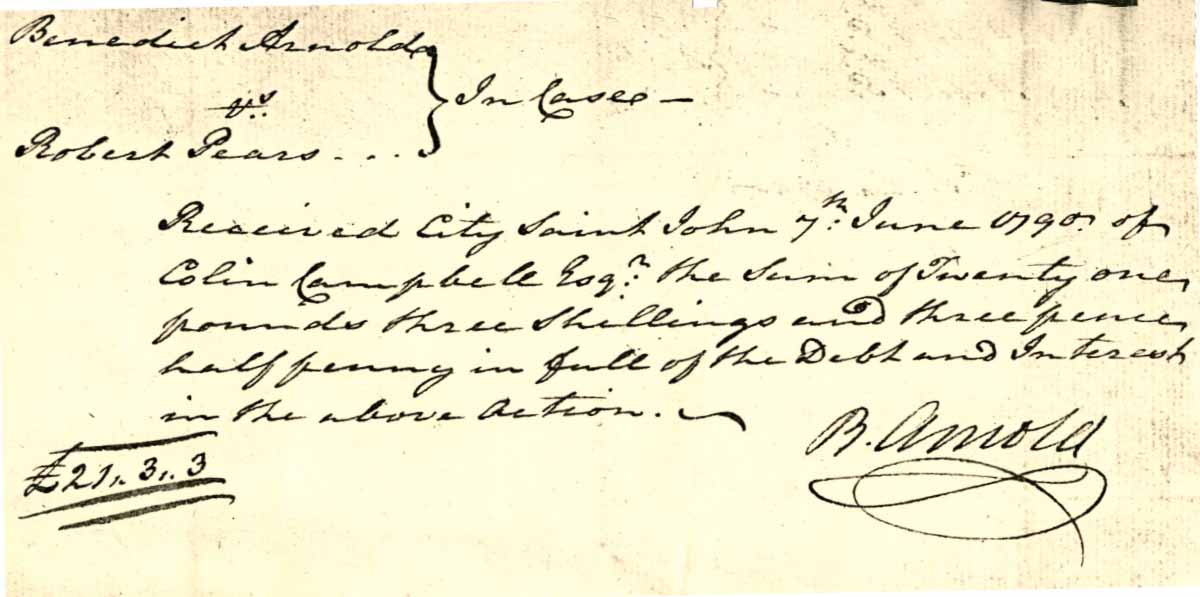 Benedict Arnold
vs.
Robert Pears . . .
} In Case —
Received City Saint John 7th. June 1790. of
Colin Campbell Esqr. the Sum of Twenty one
pounds three Shillings and three pence
half penny in full of the Debt and Interest
in the above Action.
B. Arnold
£21,, 3,, 3